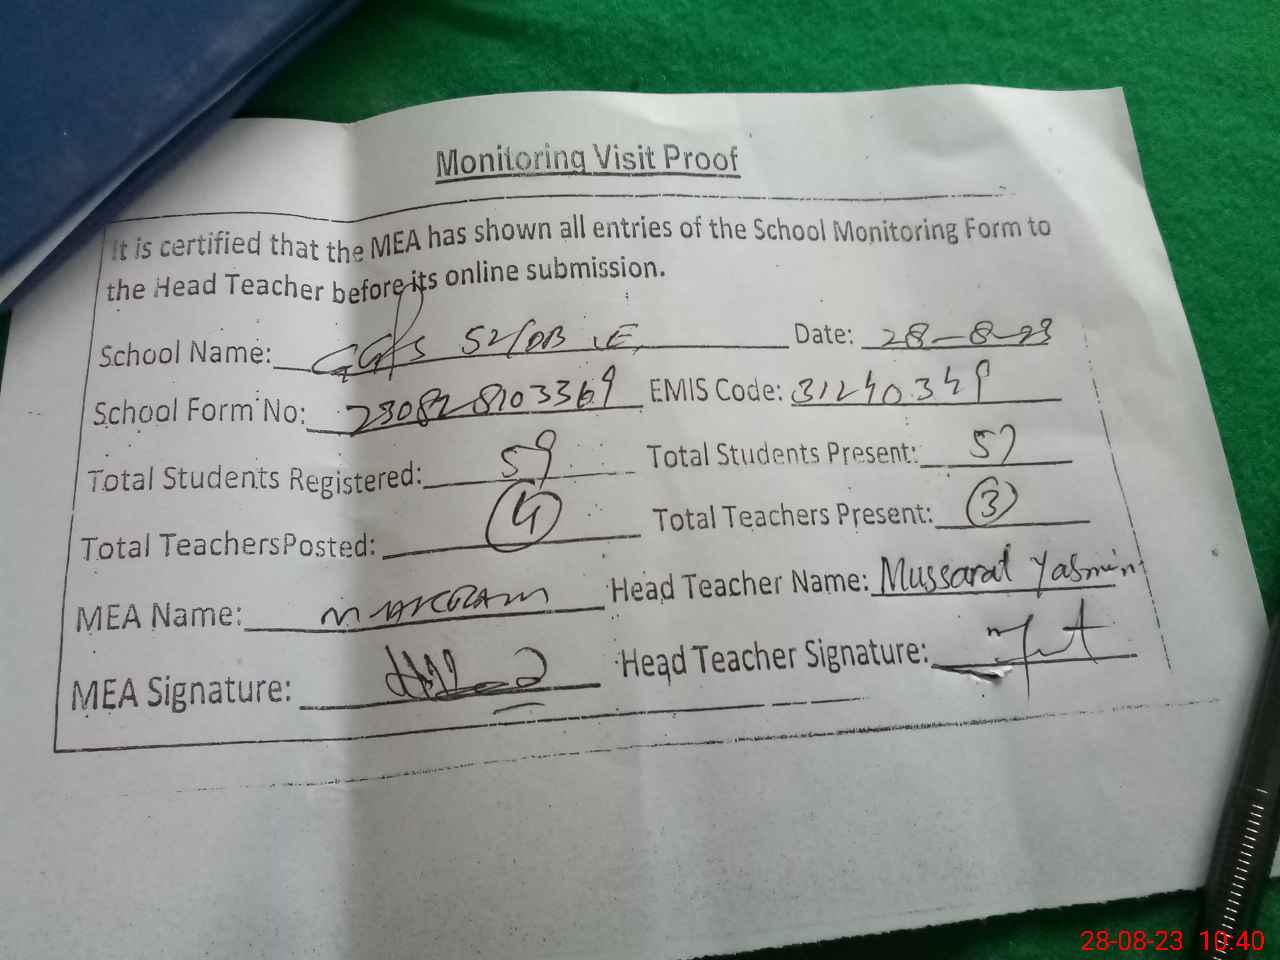 Monitoring Visit Proof
It is certified that the MEA has shown all entries of the School Monitoring Form to
the Head Teacher before its online submission.
School Name: 52/DB Date: 28-8-23
School Form No: 230828103369 EMIS Code: 31240349
Total Students Registered: 59 Total Students Present: 57
Total Teachers Posted: 4 Total Teachers Present: 3
MEA Name: Head Teacher Name: Mussarat Yasmin
MEA Signature: Head Teacher Signature:
28-08-23 10:40